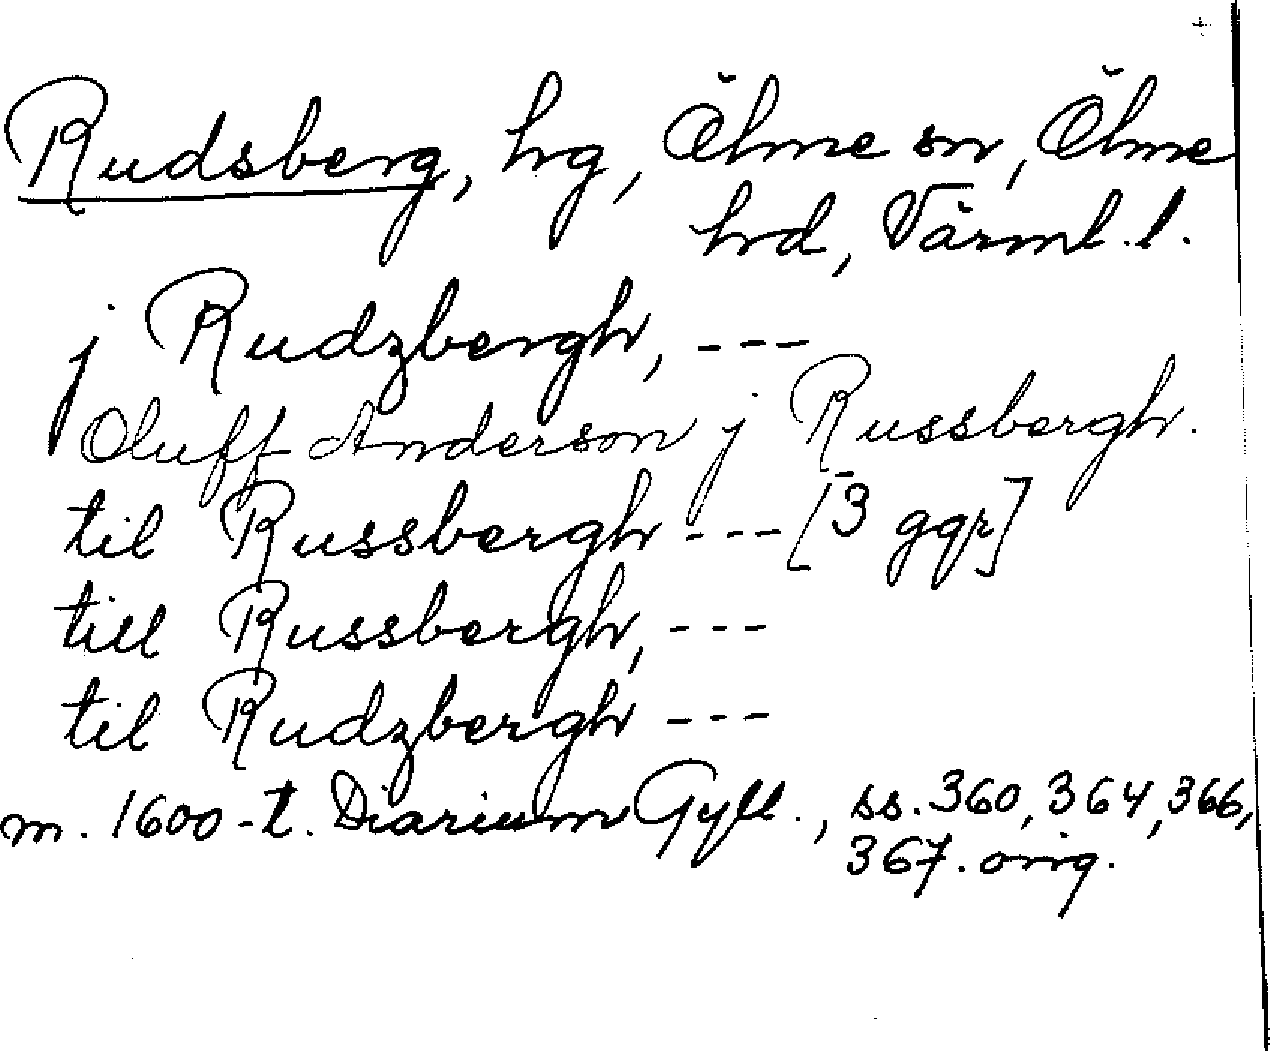 +
Rudsberg, hg, Ölme sn, Ölme
hd, Värml. l.
j Rudzbergh, ---
Oluff Anderson j Russbergh.
til Russbergh --- [3 ggr]
till Russbergh, ---
til Rudzbergh ---
m. 1600-t. Diarium Gyll., ss. 360, 364, 366,
367. orig.